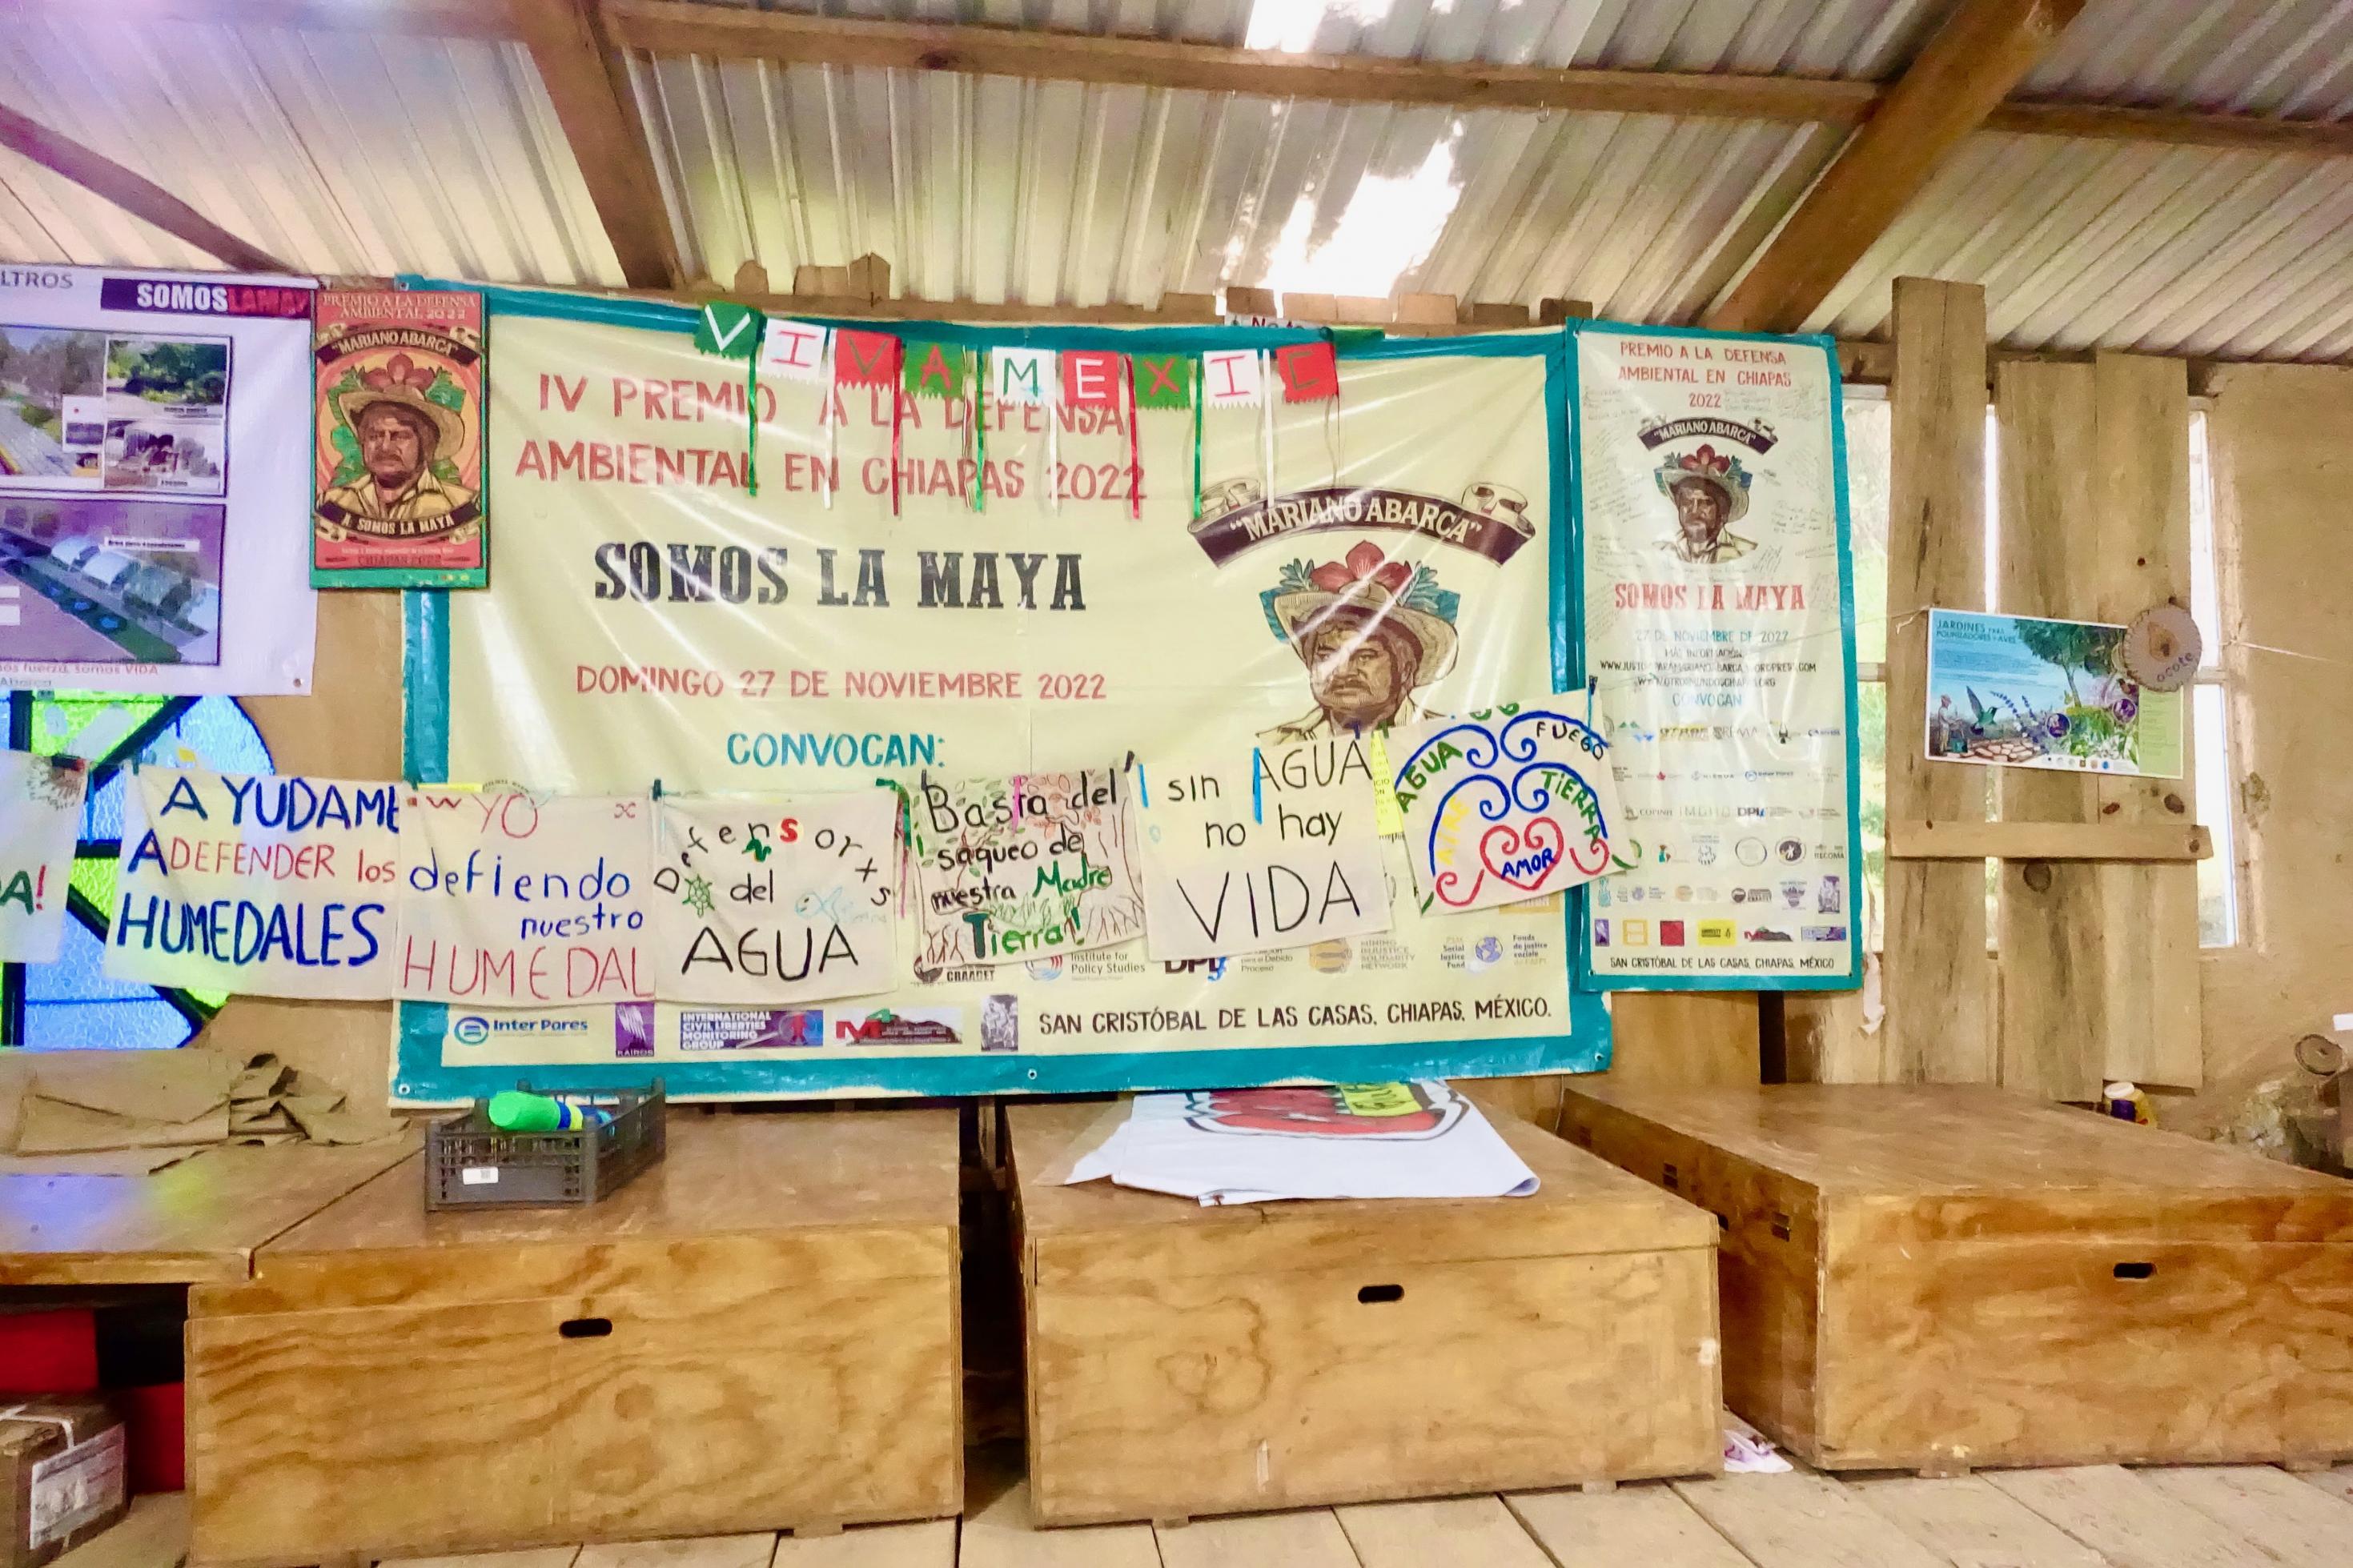 LTROS
SOMOSLAMAY
fuerza, somos VIDA
Abarca
PREMIO A LA DEFENSA
AMBIENTAL 2022
"MARIANO ABARCA"
A SOMOS LA MAYA
CHIAPAS 2022
VIVA MEXIC
IV PREMIO A LA DEFENSA
AMBIENTAL EN CHIAPAS 2022
"MARIANO ABARCA"
SOMOS LA MAYA
DOMINGO 27 DE NOVIEMBRE 2022
CONVOCAN:
A!
AYUDAME
A DEFENDER los
HUMEDALES
YO
defiendo
nuestro
HUMEDAL
Defensorxs
del
AGUA
Basta del
saqueo de
nuestra Madre
Tierra!
sin AGUA
no hay
VIDA
AGUA
FUEGO
AIRE
TIERRA
AMOR
GRAADET
Institute for
Policy Studies
DPLf
para el Debido
Proceso
MINING
INJUSTICE
SOLIDARITY
NETWORK
Social
Justice
Fund
Fonds
de justice
sociale
Inter Pares
KAIROS
INTERNATIONAL
CIVIL LIBERTIES
MONITORING
GROUP
M4
SAN CRISTÓBAL DE LAS CASAS, CHIAPAS, MÉXICO.
PREMIO A LA DEFENSA
AMBIENTAL EN CHIAPAS
2022
"MARIANO ABARCA"
SOMOS LA MAYA
27 DE NOVIEMBRE DE 2022
MÁS INFORMACIÓN:
CONVOCAN
OTROS
REMA
DPLf
SAN CRISTÓBAL DE LAS CASAS, CHIAPAS, MÉXICO
JARDINES PARA
POLINIZADORES Y AVES
ocote